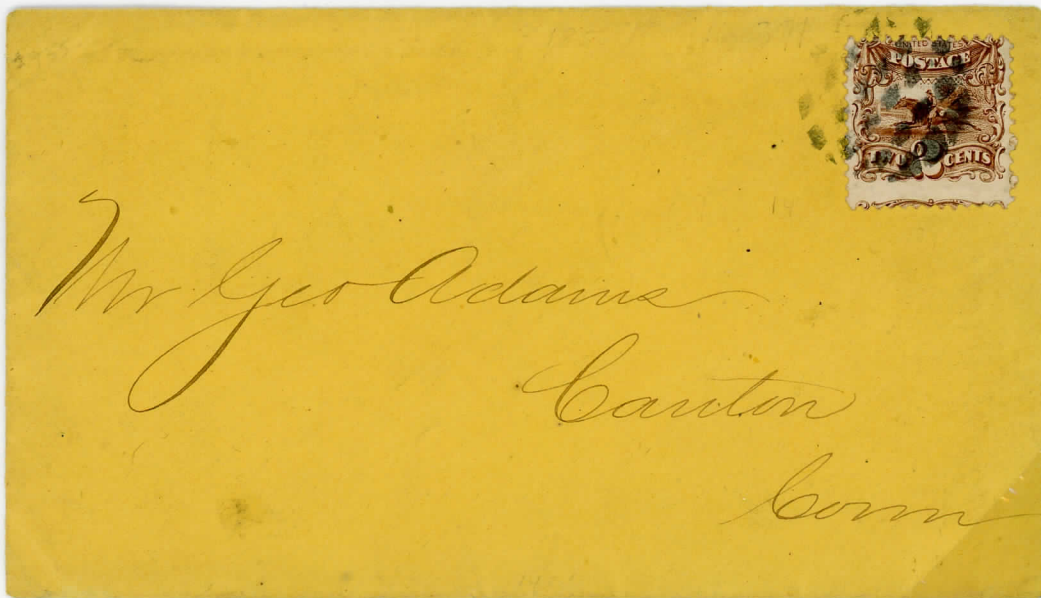 UNITED STATES
POSTAGE
TWO CENTS
Mr Geo Adams
Canton
Conn